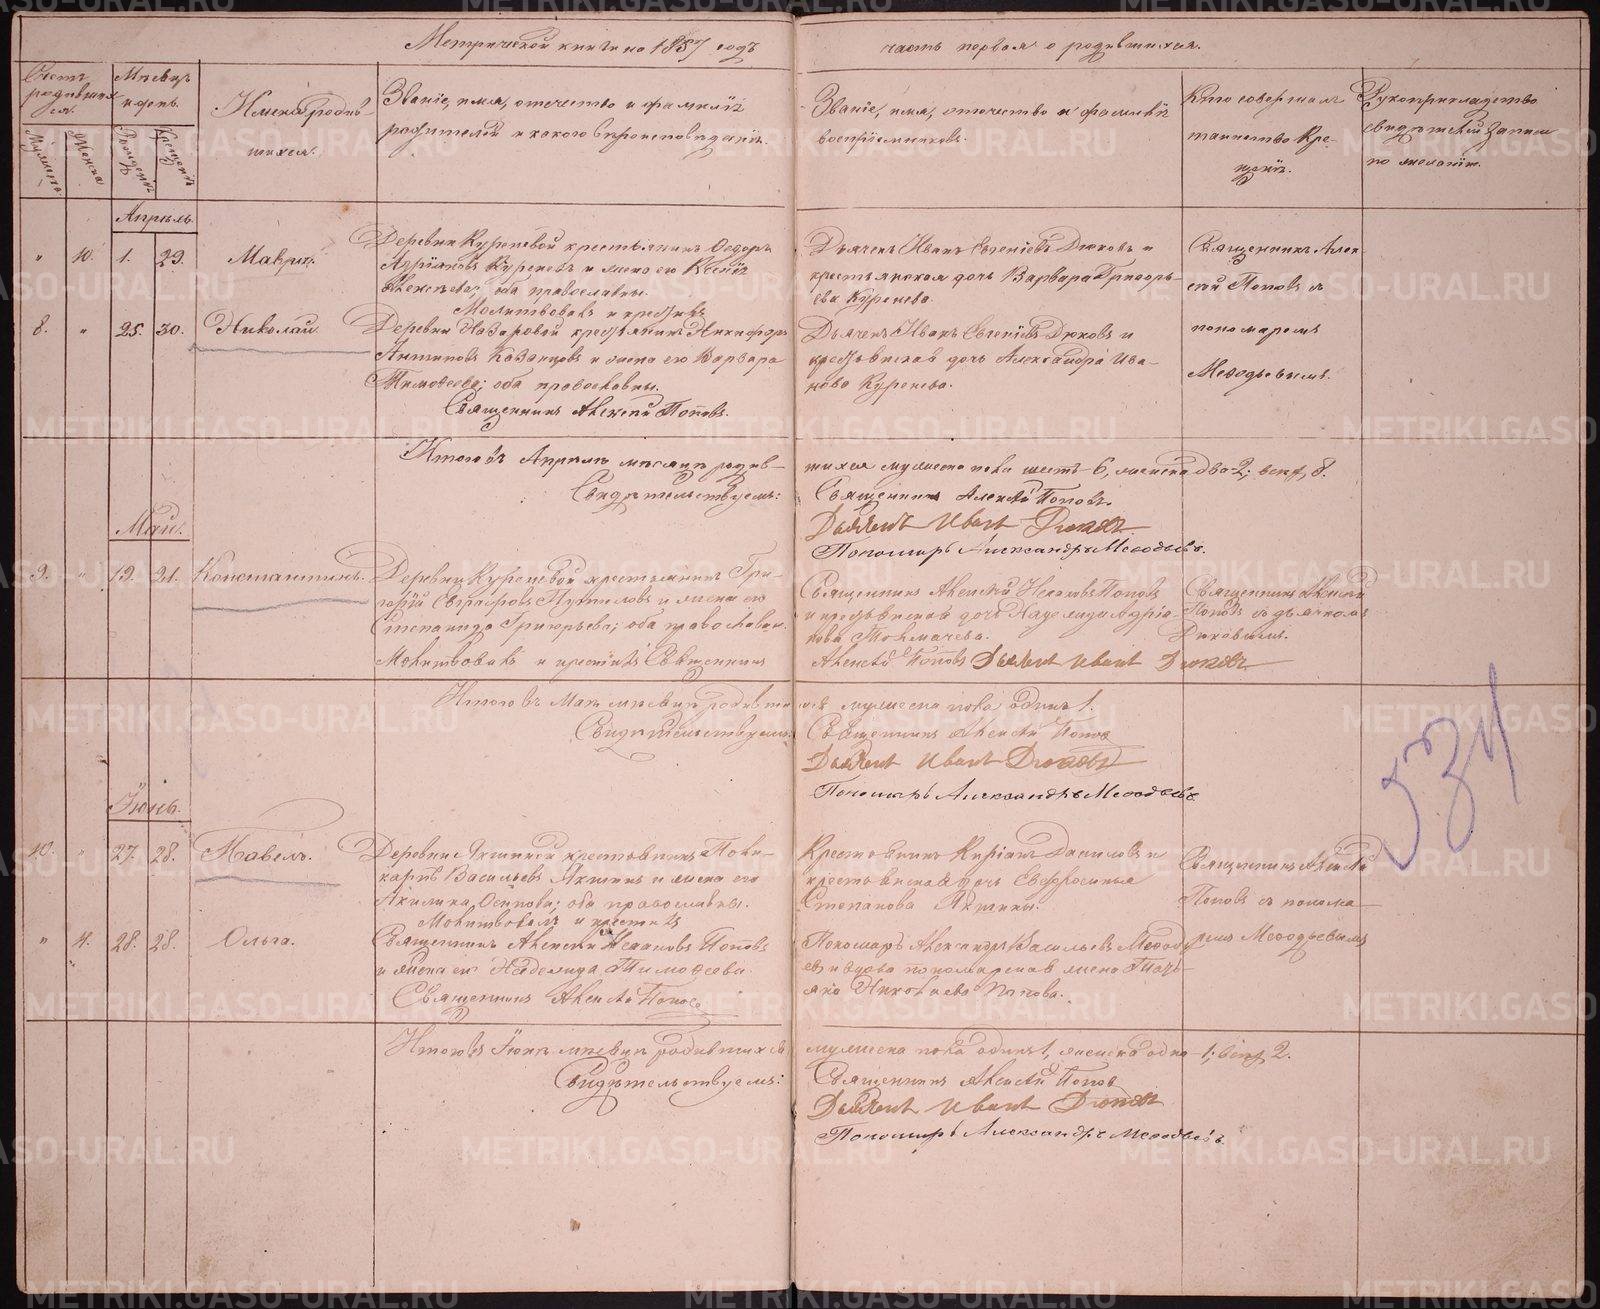 Метрической книги на 1857 годъ
часть первая о родившихся.
Счетъ родившихся.
Мужеска
Женска
Мѣсяцъ и день.
Рожденія
Крещенія
Имена родившихся.
Званіе, имя, отечество и фамилія
родителей и какого вѣроисповѣданія.
Званіе, имя, отечество и фамилія
воспріемниковъ.
Кто совершалъ
таинство Кре-
щенія.
Рукоприкладство
свидѣтелей записи
по желанію.
Апрѣль.
" 10. 1. 29. Мавра.
Деревни Куреневой крестьянинъ Ѳедоръ
Андріановъ Куреневъ и жена его Ксенія
Алексѣева, оба православны.
Дьячекъ Иванъ Евгеніевъ Дюковъ и
крестьянская дочь Варвара Григорь-
ева Куренева.
Священникъ Алек-
сѣй Поповъ съ
пономаремъ
Меѳодьевымъ.
Молитвовалъ и крестилъ
8. " 25. 30. Николай.
Деревни Назаровой крестьянинъ Никифоръ
Антиповъ Казанцовъ и жена его Варвара
Тимоѳеева; оба православны.
Священникъ Алексѣй Поповъ.
Дьячекъ Иванъ Евгеніевъ Дюковъ и
крестьянская дочь Александра Ива-
нова Куренева.
Итого въ Апрѣлѣ мѣсяцѣ родив-
шихся мужеска пола шесть 6, женска два 2; всѣхъ 8.
Свидѣтельствуемъ:
Священникъ Алексѣй Поповъ.
Дьячекъ Иванъ Дюковъ
Пономарь Александръ Меѳодьевъ.
Май.
9. " 19. 21. Константинъ.
Деревни Куреневой крестьянинъ Гри-
горій и жена его
Степанида Григорьева; оба православны.
Молитвовалъ и крестилъ Священникъ
Священникъ Алексѣй Поповъ
и крестьянская дочь Надежда Адріа-
нова Толмачева.
Алексѣй Поповъ Дьячекъ Иванъ Дюковъ
Священникъ Алексѣй
Поповъ съ дьячкомъ
Дюковымъ.
Итого въ Маѣ мѣсяцѣ родивши
хся мужеска пола одинъ 1.
Свидѣтельствуемъ:
Священникъ Алексѣй Поповъ
Дьячекъ Иванъ Дюковъ
Пономарь Александръ Меѳодьевъ
534
Іюнь.
10. " 27. 28. Павелъ.
Деревни Якшиной крестьянинъ Поли-
карпъ Васильевъ Якшинъ и жена его
Акилина Осипова; оба православны.
Молитвовалъ и крестилъ
Крестьянинъ Киріанъ Даниловъ и
крестьянская дочь Евфросинья
Степанова Якшины.
Священникъ Алексѣй
Поповъ съ понома-
ремъ Меѳодьевымъ
" 4. 28. 28. Ольга.
Священникъ Алексѣй Поповъ
и жена его Надежда Тимоѳеева.
Священникъ Алексѣй Поповъ
Пономарь Александръ Васильевъ Меѳодь
евъ и вдова пономарская жена Тать-
яна Николаева Попова.
Итого въ Іюнѣ мѣсяцѣ родившихся
мужеска пола одинъ 1, женска одна 1; всѣхъ 2.
Свидѣтельствуемъ:
Священникъ Алексѣй Поповъ
Дьячекъ Иванъ Дюковъ
Пономарь Александръ Меѳодьевъ.
METRIKI.GASO-URAL.RU